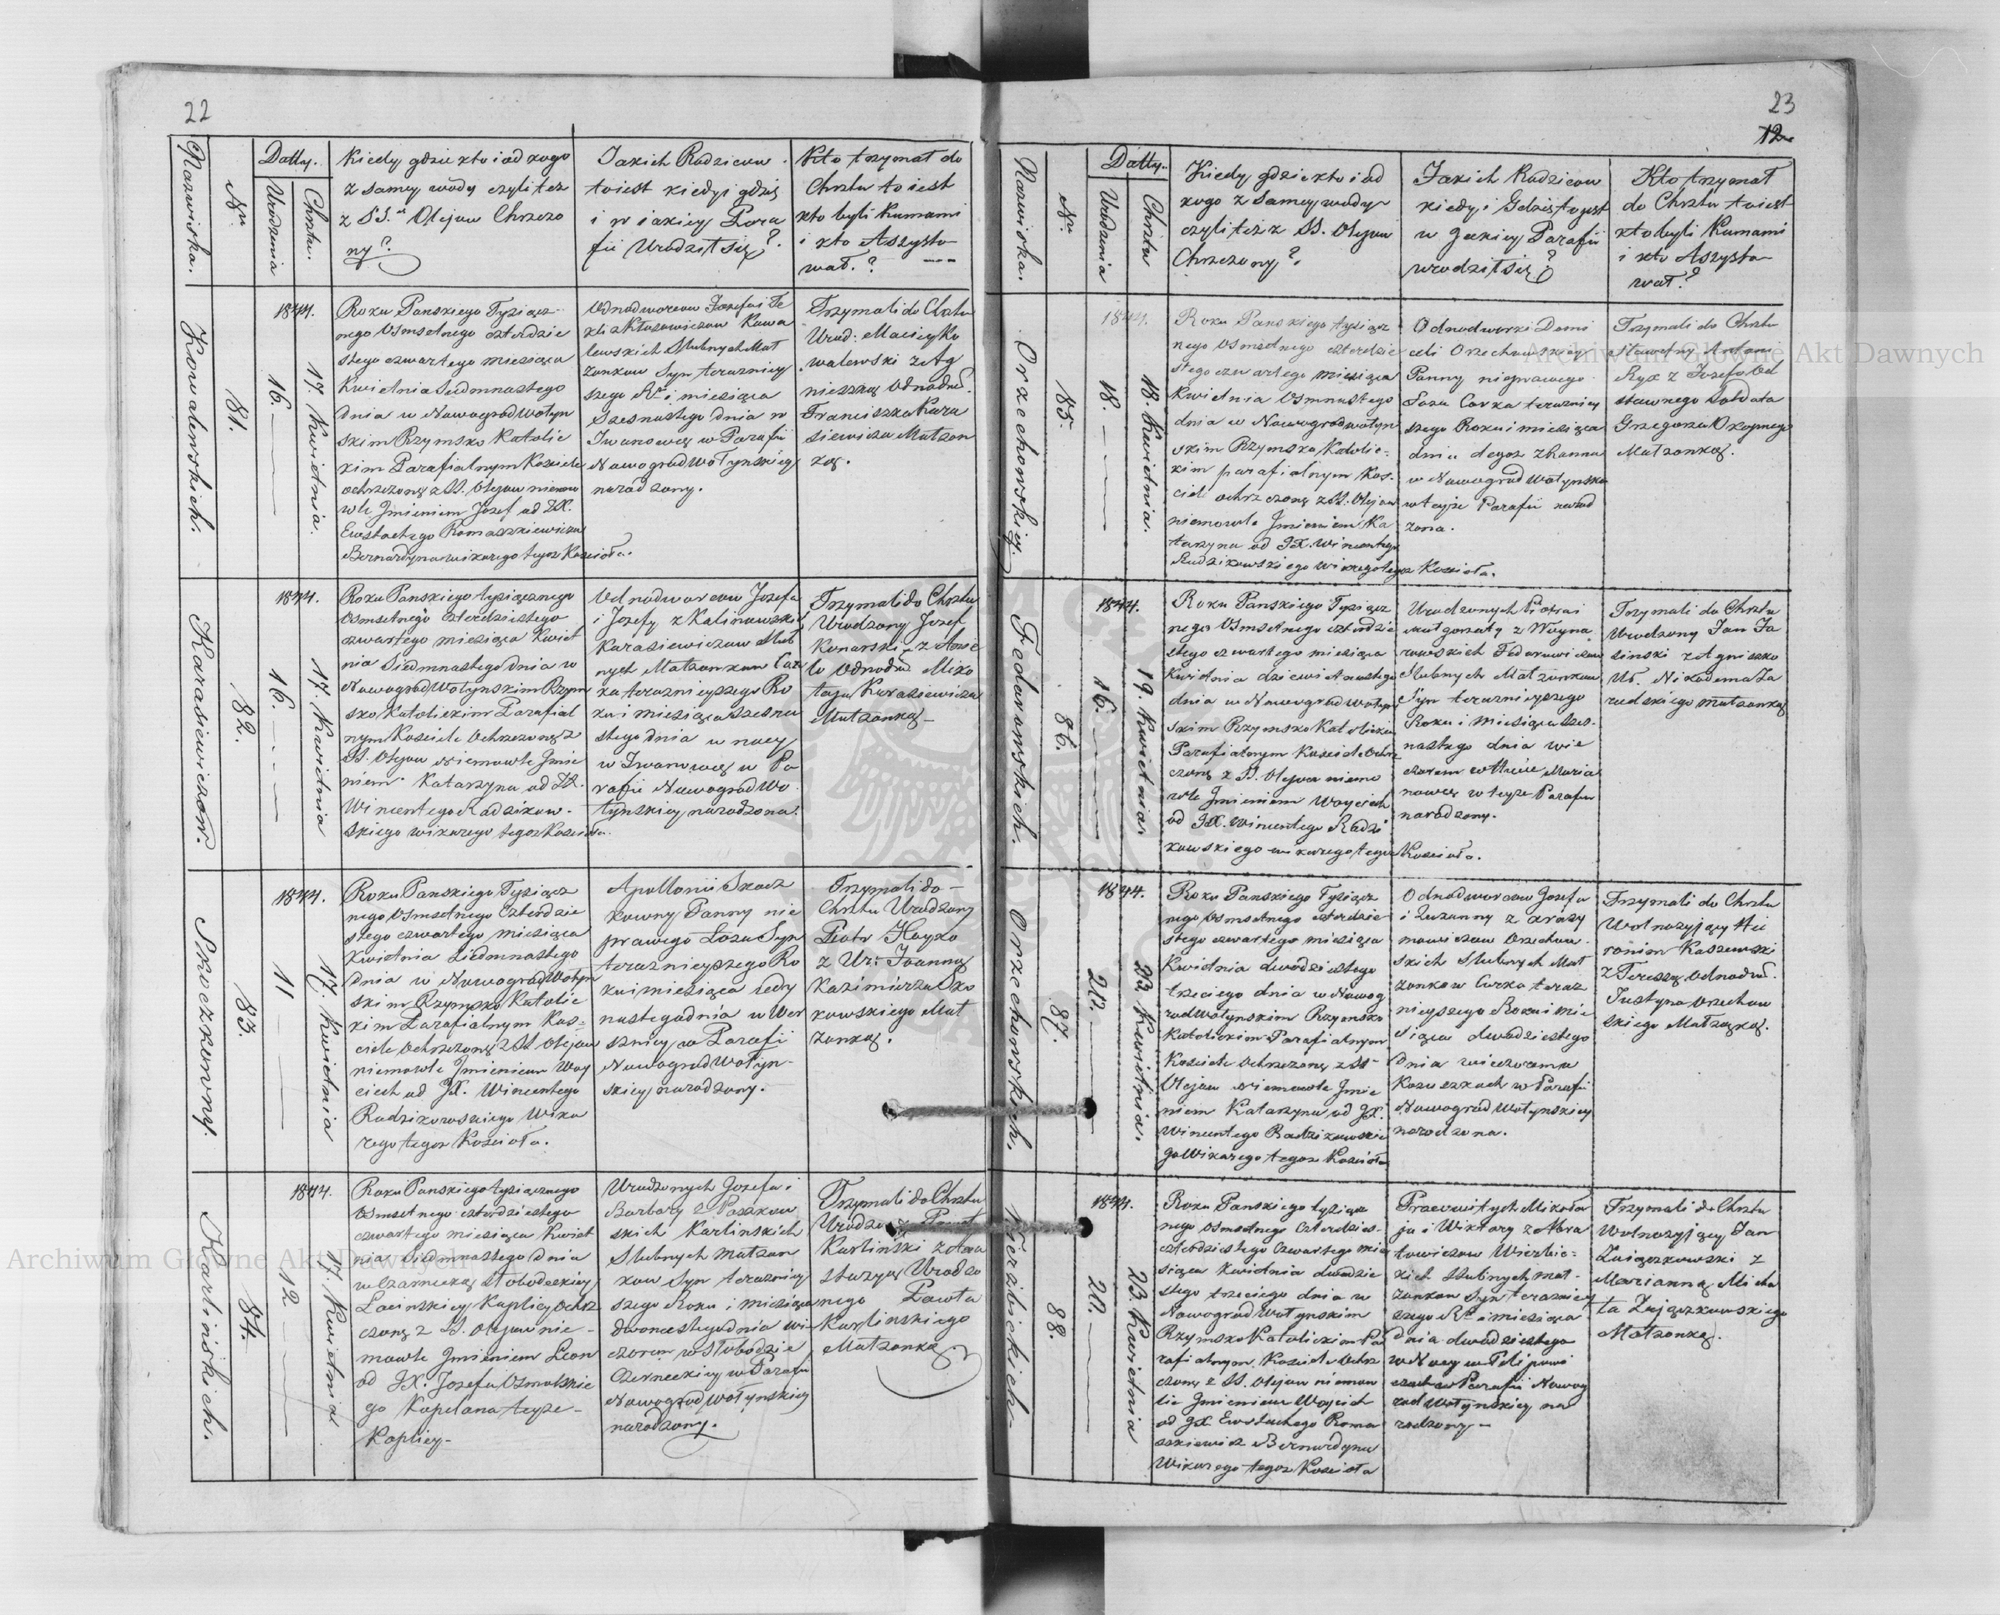 22
Nazwiska.
Nr.
Datty.
Urodzenia
Chrztu.
Kiedy gdzie kto i od kogo
z samey wody czyli też
z SS. Olejow Chrzczo
ny?
Jakich Rodzicow
to iest kiedy i gdzie
i w iakiey Para
fii Urodził się?
Kto trzymał do
Chrztu to iest
kto byli Kumami
i kto Assysto-
wał.?
Kowalewskich.
81.
1844.
16.
17. Kwietnia.
Roku Panskiego Tysiącz
nego Osmsetnego czterdzie
stego czwartego miesiąca
Kwietnia Siedmnastego
dnia w Nawogrodwołyn
skim Rzymsko Katolic
kim Parafialnym Kosciele
ochrzczony z SS. Olejow niemow
wle Jmieniem Jozef od JX.
Eustachego Romaszkiewicza
Bernardyna wikarego tegoż Kosciola.
Odnodworcow Jozefa i Te
kli z Kłosowiczow Kowa
lewskich Slubnych Mał
żonkow Syn terazniey
szego Ru i miesiąca
Szesnastego dnia w
Iwanowce w Parafii
Nawogrodwołynskiey
narodzony.
Trzymali do Chrztu
Urod: Maciey Ko
walewski z Ag
nieszką Odnodw.
Franciszka Kara
siewicza Małżon
ką.
Karasiewiczow.
82.
1844.
16.
17. Kwietnia
Roku Panskiego tysiącznego
Osmsetnego czterdziestego
czwartego miesiąca Kwiet
nia Siedmnastego dnia w
Nawogrodwołynskim Rzym
sko Katolickim Parafial
nym Kosciele Ochrzczone z
SS. Olejow Niemowle Jmie
niem Katarzyna od JX.
Wincentego Radzikow-
skiego wikarego tegoż Kosciola.
Odnodworcow Jozefa
i Jozefy z Kalinowskich
Karasiewiczow Slub
nych Małżonkow Cor
ka teraznieyszego Ro
ku i miesiąca Szesna
stego dnia w nocy
w Iwanowce w Pa
rafii Nawogrodwo
łynskiey narodzona.
Trzymali do Chrztu
Urodzony Jozef
Konarski z Anie
lą Odnodw. Miko
łaja Karasiewicza
Małżonką.
Skoczkowny.
83.
1844.
11
17. Kwietnia
Roku Panskiego Tysiącz
nego Osmsetnego Czterdzie
stego czwartego miesiąca
Kwietnia Siedmnastego
dnia w Nawogrodwołyn
skim Rzymsko Katolic
kim Parafialnym Kos-
ciele Ochrzczony z SS Olejow
niemowle Jmieniem Woy
ciech od JX. Wincentego
Radzikowskiego Wika
rego tegoż Kosciola.
Apollonii Skocz
kowny Panny nie
prawego Łoza Syn
teraznieyszego Ro
ku i miesiąca iedy
nastego dnia w Wer
sznicy w Parafi
Nawogrodwołyn-
skiey narodzony.
Trzymali do-
Chrztu Urodzony
Piotr Hayko
z Ur: Joanną
Kazimierza Sko
kowskiego Mał
żonką.
Karlińskich.
84.
1844.
12
17. Kwietnia
Roku Panskiego tysiącznego
Osmsetnego czterdziestego
czwartego miesiąca Kwiet
nia Siedmnastego dnia
w Czarneckiey Słobodeckiey
Łacinskiey Kaplicy Ochrz
czony z SS. Olejow nie-
mowle Jmieniem Leon
od JX. Jozefa Osmolskie
go Kapelana teyże-
Kaplicy-
Urodzonych Jozefa i
Barbary z Paszkow
skich Karlinskich
Slubnych małżon
kow Syn terazniey
szego Roku i miesiąca
dwonastego dnia wie
czorem w Słobodzie
Czerneckiey w Parafii
Nawogrodwołynskiey
narodzony.
Trzymali do Chrztu
Urodzony Paweł
Karlinski z Ana
stazyą Urodzo
nego Pawła
Karlinskiego
Małżonką.
23
12
Nazwiska.
Nr.
Datty.
Urodzenia
Chrztu
Kiedy gdzie kto i od
kogo z Samey wody
czyli też z SS. Olejow
Chrzczony?
Jakich Rodzicow
kiedy i Gdzie to jest
w Jakiey Parafii
urodził się?
Kto trzymał
do Chrztu to iest
kto byli Kumami
i kto Assysto-
wał?
Orzechowskiey
85.
1844.
18.
18. Kwietnia.
Roku Panskiego tysiącz
nego Osmsetnego czterdzie
stego czwartego miesiąca
Kwietnia Osmnastego
dnia w Nawogrodwołyn
skim Rzymsko Katolic-
kim parafialnym Kos-
ciele ochrzczone z SS. Olejow
niemowle Jmieniem Ka
tarzyna od JX. Wincentego
Radzikowskiego Wikarego tegoż Kosciola.
Odnodworki Domi
celi Orzechowskiey
Panny nieprawego
Łoza Corka terazniey
szego Roku i miesiąca
dnia tegoż z Ranna
w Nawogrodwołynsku
w teyże Parafii narod
zona.
Trzymali do Chrztu
Sławetny Antoni
Ryx z Jozefą Od
stawnego Sołdata
Grzegorza
Małżonką.
Fedorowskich.
86.
1844.
16.
19. Kwietnia.
Roku Panskiego Tysiącz
nego Osmsetnego czterdzie
stego czwartego miesiąca
Kwietnia dziewietnastego
dnia w Nawogrodwołyn
skim Rzymsko Katolickim
Parafialnym Kosciele Ochrz
czony z SS. Olejow niemo
wle Jmieniem Woyciech
od JX. Wincentego Radzi
kowskiego wikarego tegoż Kosciola.
Urodzonych Piotra i
Małgorzaty z Woyna
rowskich Fedorowiczow
Slubnych Małżonkow
Syn teraznieyszego
Roku i Miesiąca Szes-
nastego dnia wie
czorem w Maria
nowce w teyże Parafii
narodzony.
Trzymali do Chrztu
Urodzony Jan Ja
sinski z Agniszką
Ur. Nikodema Za
rudskiego małżonką
Orzechowskich.
87.
1844.
212.
23 Kwietnia.
Roku Panskiego Tysiącz
nego Osmsetnego czterdzie
stego czwartego miesiąca
Kwietnia dwudziestego
trzeciego dnia w Nawog
rodwołynskim Rzymsko
Katolickim Parafialnym
Kosciele Ochrzczone z SS-
Olejow Niemowle Jmie
niem Katarzyna od JX.
Wincentego Radzikowskie
go Wikarego tegoż Kosciola
Odnodworcow Jozefa
i Zuzanny z
Orzechow-
skich Slubnych Mał
żonkow Corka teraz
nieyszego Roku i mie
siąca dwudziestego
dnia wieczorem w
Koszeszkach w Parafii
Nawogrodwołynskiey
narodzona.
Trzymali do Chrztu
Wolnożyjący Hie
ronim Kaszewski
z Teresą Odnodw.
Justyna Orzechow
skiego Małżonką.
Wierzbickich.
88.
1844.
20.
23. Kwietnia
Roku Panskiego tysiącz
nego Osmsetnego Czterdzies-
czterdziestego czwartego mie
siąca Kwietnia dwudzie
stego trzeciego dnia w
Nawogrodwołynskim
Rzymsko Katolickim Pa
rafialnym Kosciele Ochrz
czony z SS. Olejow niemow
le Jmieniem Woyciech
od JX Eustachego Roma
szkiewicz Bernardyna
Wikarego tegoż Kosciola
Pracowitych Mikoła
ja i Wiktory z Abra
mowiczow Wierzbic-
kich Slubnych mał-
żonkow Syn terazniey
szego Ru i miesiąca
dnia dwudziestego
w Nocy w Pilipowi
czach w Parafii Nawog
rodwołynskiey na
rodzony-
Trzymali do Chrztu
Wolnożyjący Jan
Zajączkowski z
Marianną Micha
ła Zajączkowskiego
Małżonką.
Archiwum Główne Akt Dawnych
Archiwum Główne Akt Dawnych